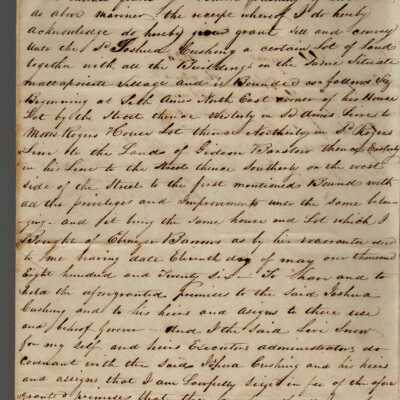 do also manner the receipt whereof I do hereby
acknowledge do hereby grant sell and convey
unto the Sd Joshua Cushing a certain Lot of Land
together with all the Buildings on the Same Situate
mattapoisett Village and is Bounded as follows Viz
Beginning at Seth Ames North East corner of his House
Lot by the Street thence Westerly in Sd Ames Line to
House Lot thence Northerly in Sd
Line to the Lands of Gideon Barstow thence Easterly
in his Line to the Street thence Southerly on the west
side of the Street to the first mentioned Bound with
all the privileges and Improvements unto the same belon
ging and yet being the same house and Lot which I
Bought of Ebenezer as by his warrantee deed
to me having date Eleventh day of may one thousand
Eight hundred and Twenty Six To Have and to
hold the aforegranted premises to the Said Joshua
Cushing and to his heirs and assigns to there use
and behoof forever And I the Said Levi Snow
for my self and heirs Executors administrators do
covenant with the said Joshua Cushing and his heirs
and assigns that I am Lawfully Seized in fee of the afore
granted premises that the